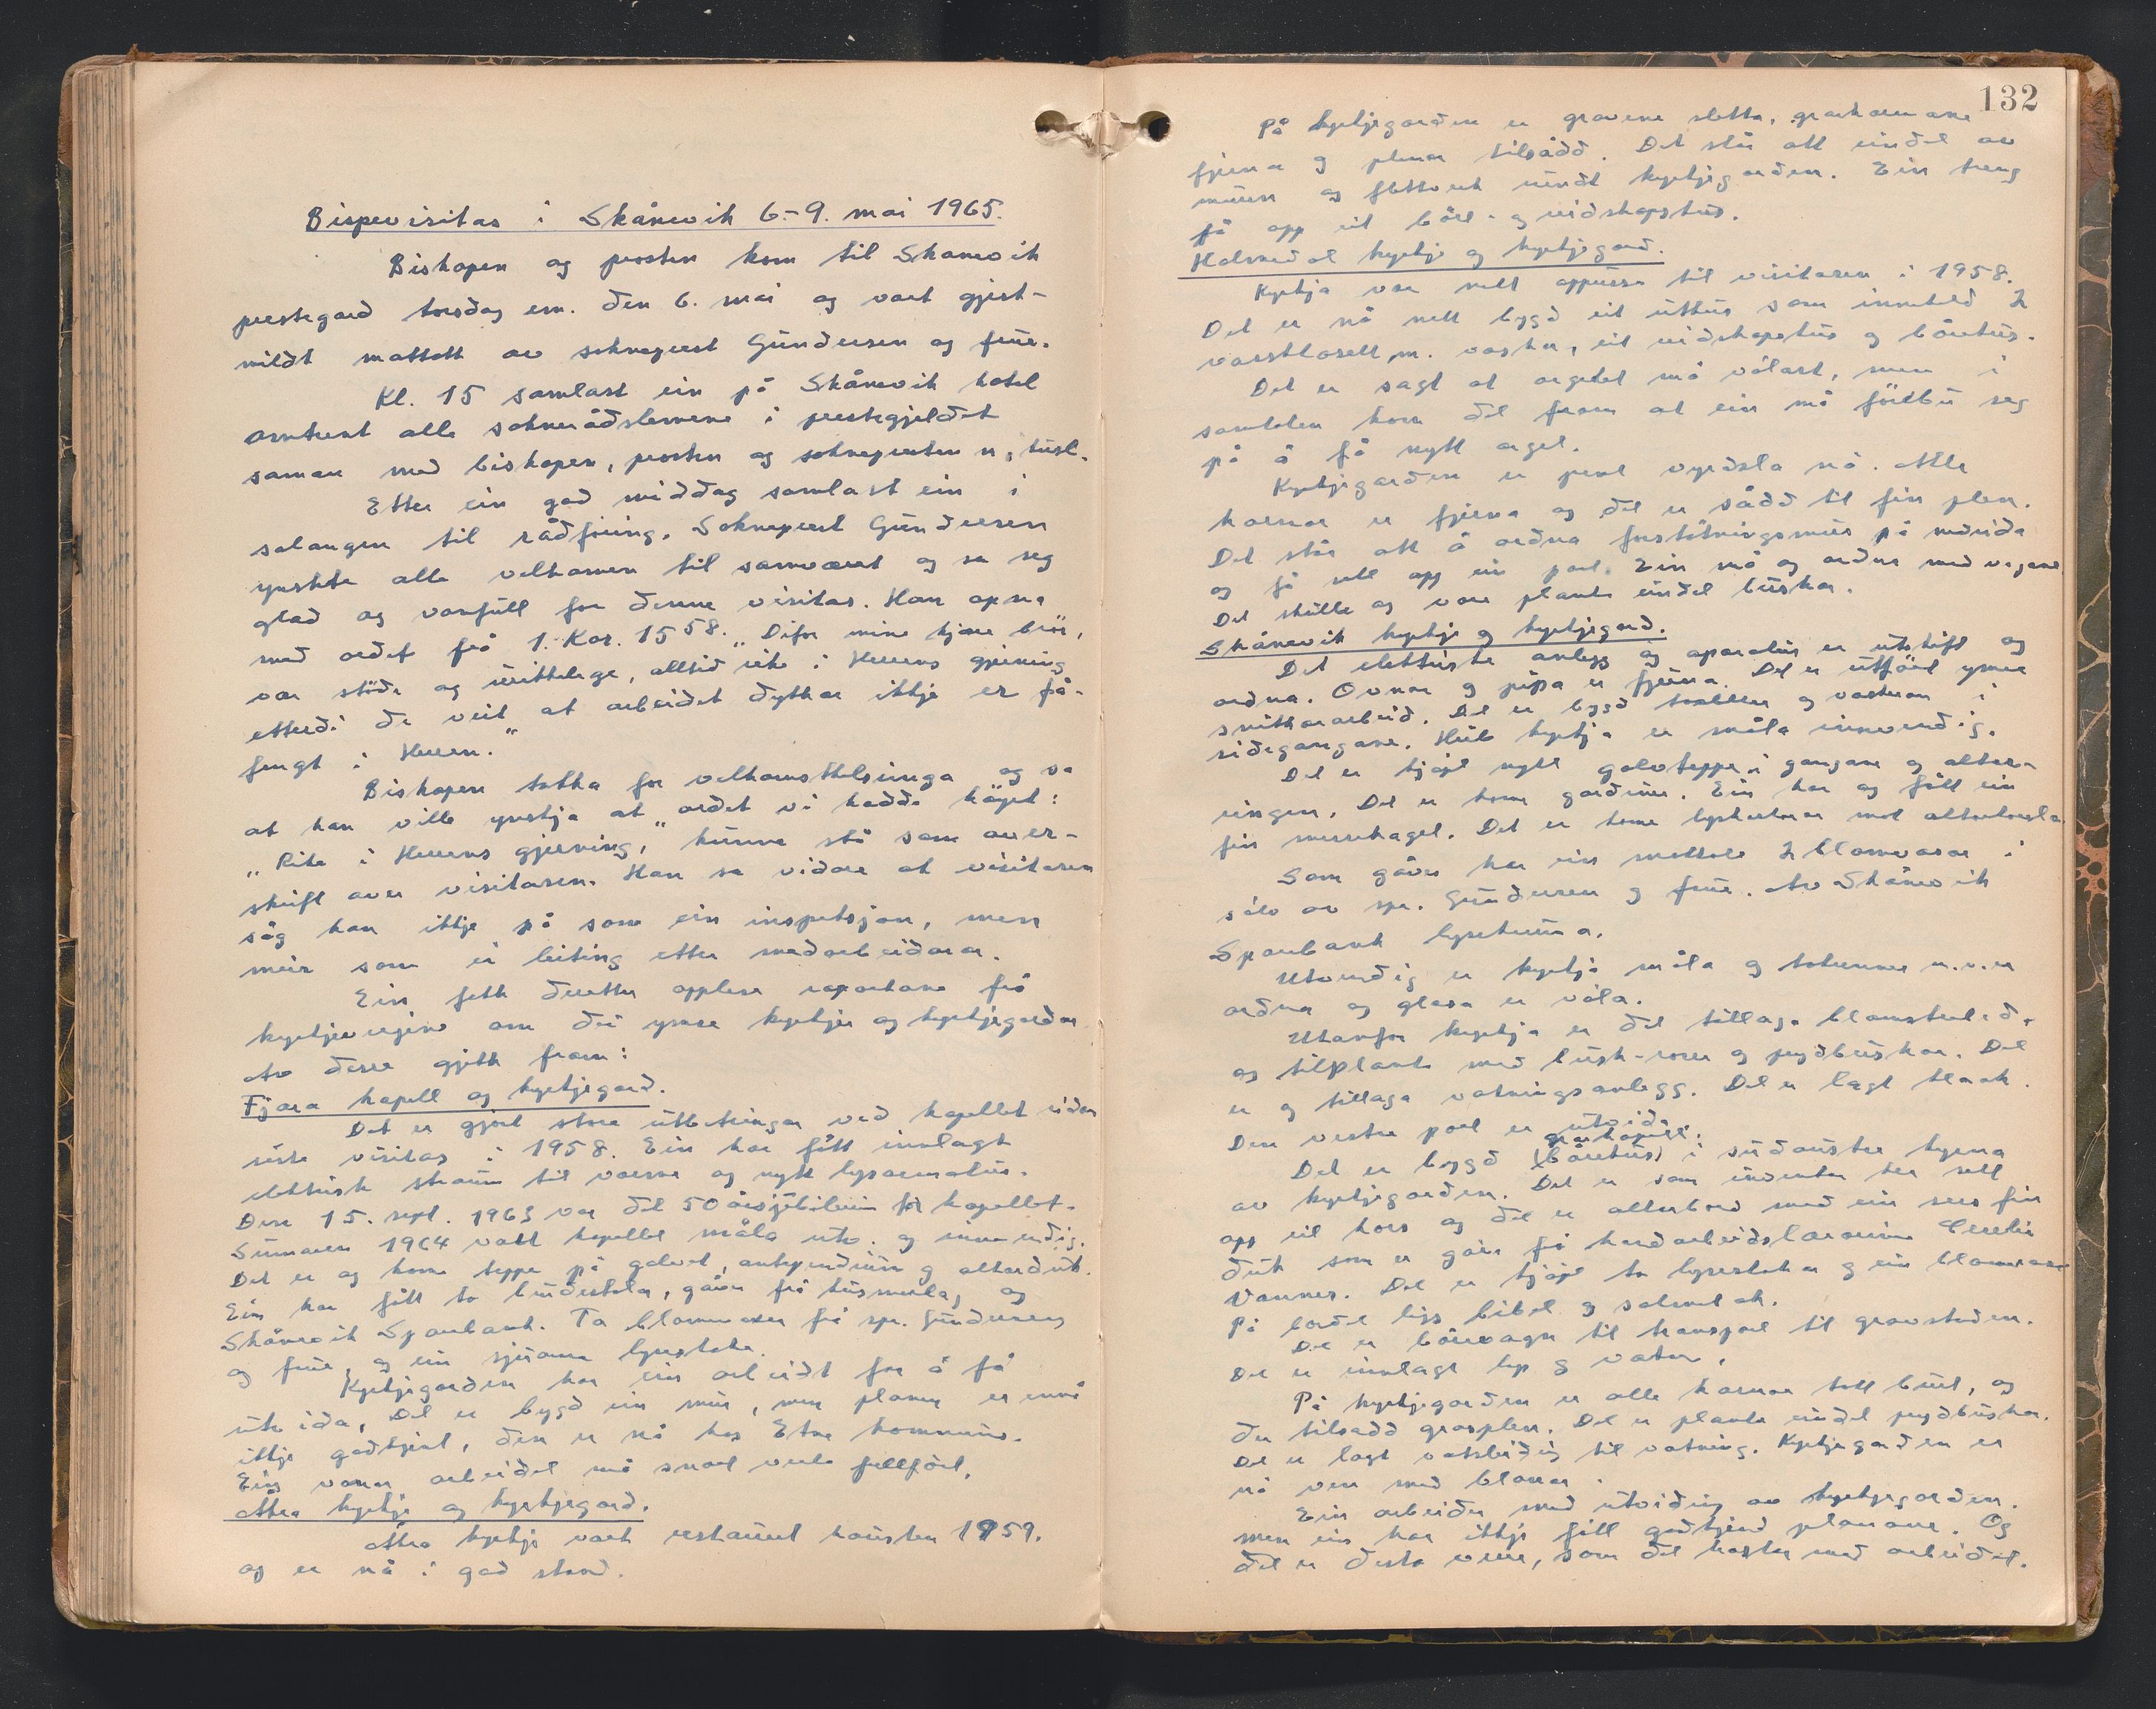 Bispevisitas i Skånevik 6.-9. mai 1965.
Biskopen og prosten kom til Skånevik
prestegard torsdag em. den 6. mai og vart gjest-
mildt mottott av sokneprest Gundersen og frue.
Kl. 15 samlast ein på Skånevik hotel
omtrent alle sokneråðslemene i prestegjeldet
saman med biskopen, prosten og soknepresten
Etter ein god middag samlast ein i
salongen til rådföring. Sokneprest Gundersen
ynskte alle velkomen til samværet og sa seg
glad og vonfull for denne visitas. Han opna
med ordet frå 1. Kor. 15 58. "Difor mine kjære brör,
ver stöde og urikkelege, alltid rike i Herrens gjerning
etterdi de veit at arbeidet dykkar ikkje er få-
fengt i Herren."
Biskopen takka for velkomsthelsinga og sa
at han ville ynskja at ordet vi hadde höyrt:
"Rike i Herrens gjerning," kunne stå som over-
skrift over visitasen. Han sa vidare at visitasen
såg han ikkje på som ein inspeksjon, men
meir som ei leiting etter medarbeidarar.
Ein fekk deretter opplese raportane frå
kyrkjeverjene om dei ymse kyrkjer og kyrkjegardar
Av desse gjekk fram:
Fjæra kapell og kyrkjegard.
Det er gjort store utbetringar ved kapellet sidan
siste visitas i 1958. Ein har fått innlagt
elektrisk straum til varme og nytt lysarmatur.
Den 15. sept. 1963 var det 50 årsjubileum for kapellet.
Sumaren 1964 vart kapellet måla utv. og innvendig.
Det er og kome teppe på golvet, antependium og altarduk.
Ein har fått to brudestolar, gåver frå husmorlag og
Skånevik Sparebank. To blomevaser frå spr. Gundersen
og frue, og ein sjuarma lysestake.
Kyrkjegarden har ein arbeidt for å få
utvida. Det er bygd ein mur, men planen er ennå
ikkje godkjent, den er nå hos Etne kommune.
Ein vonar arbeidet må snart verte fullfört.
Åkra kyrkje og kyrkjegard.
Åkra kyrkje vart restaurert hausten 1959.
og er nå i god stand.
132
På kyrkjegarden er gravene sletta, gravkarmane
fjerna og plenar tilsådd. Det står att eindel av
muren og flettverk rundt kyrkjegarden. Ein treng
få opp eit båre- og reidskapshus.
Holmedal kyrkje og kyrkjegard.
Kyrkja var nett oppussa til visitasen i 1958.
Det er nå nett bygd eit uthus som inneheld 2
vassklosett m. vaskar, eit reidskapshus og bårehus.
Det er sagt at orgelet må vólast, men i
samtalen kom det fram at ein må förebu seg
på å få nytt orgel.
Kyrkjegarden er pent vyrdsla nå. Alle
karmar er fjerna og det er sådd til fin plen.
Det står att å ordna forstötningsmur på nedsida
og få sett opp ein port. Ein må og ordna med vegane
Det skulle og vore planta eindel buskar.
Skånevik kyrkje og kyrkjegard.
Det elektriske anlegg og aparatur er utskift og
ordna. Ovnar og pipa er fjerna. Det er utfört ymse
snikkararbeid. Det er bygd toaletter og vaskerom i
sidegangane. Heile kyrkja er måla innvendig.
Det er kjöpt nytt golvteppe i gangane og altar-
ringen. Det er kome gardiner. Ein har og fått ein
fin messehagel. Det er kome lyskastarar mot altartavla
Som gåver har ein mottatt 2 blomvasar i
sölv av spr. Gundersen og frue. Av Skånevik
Sparebank lysekruna.
Utvendig er kyrkja måla og takrenner m.v. er
ordna og glasa er vóla.
Utanfor kyrkja er det tillaga blomsterbed
og tilplanta med busk-roser og prydbuskar. Det
er og tillaga vatningsanlegg. Det er lagt
Den vestre port er utvida.
gravkapell.
Det er bygd (bårehus) i sydaustre hyrna
av kyrkjegarden. Det er som innentr
opp eit kors og det er altarbord med ein sers fin
duk som er gåve frå handarbeidslærarinne Cecelie
Vannes. Det er kjöpt to lysestakar og ein blomevase
På bordet ligg bibel og salmebok.
Det er bårevogn til transport til gravstaden.
Det er innlagt lys og vatn.
På kyrkjegarden er alle karmar tatt burt, og
der tilsådd grasplen. Det er planta eindel prydbuskar.
Det er lagt vassleidning til vatning. Kyrkjegarden er
nå ven med blomar.
Ein arbeider med utviding av kyrkjegarden.
men ein har ikkje fått godkjend planane. Og
det er desto verre, som det hastar med arbeidet.